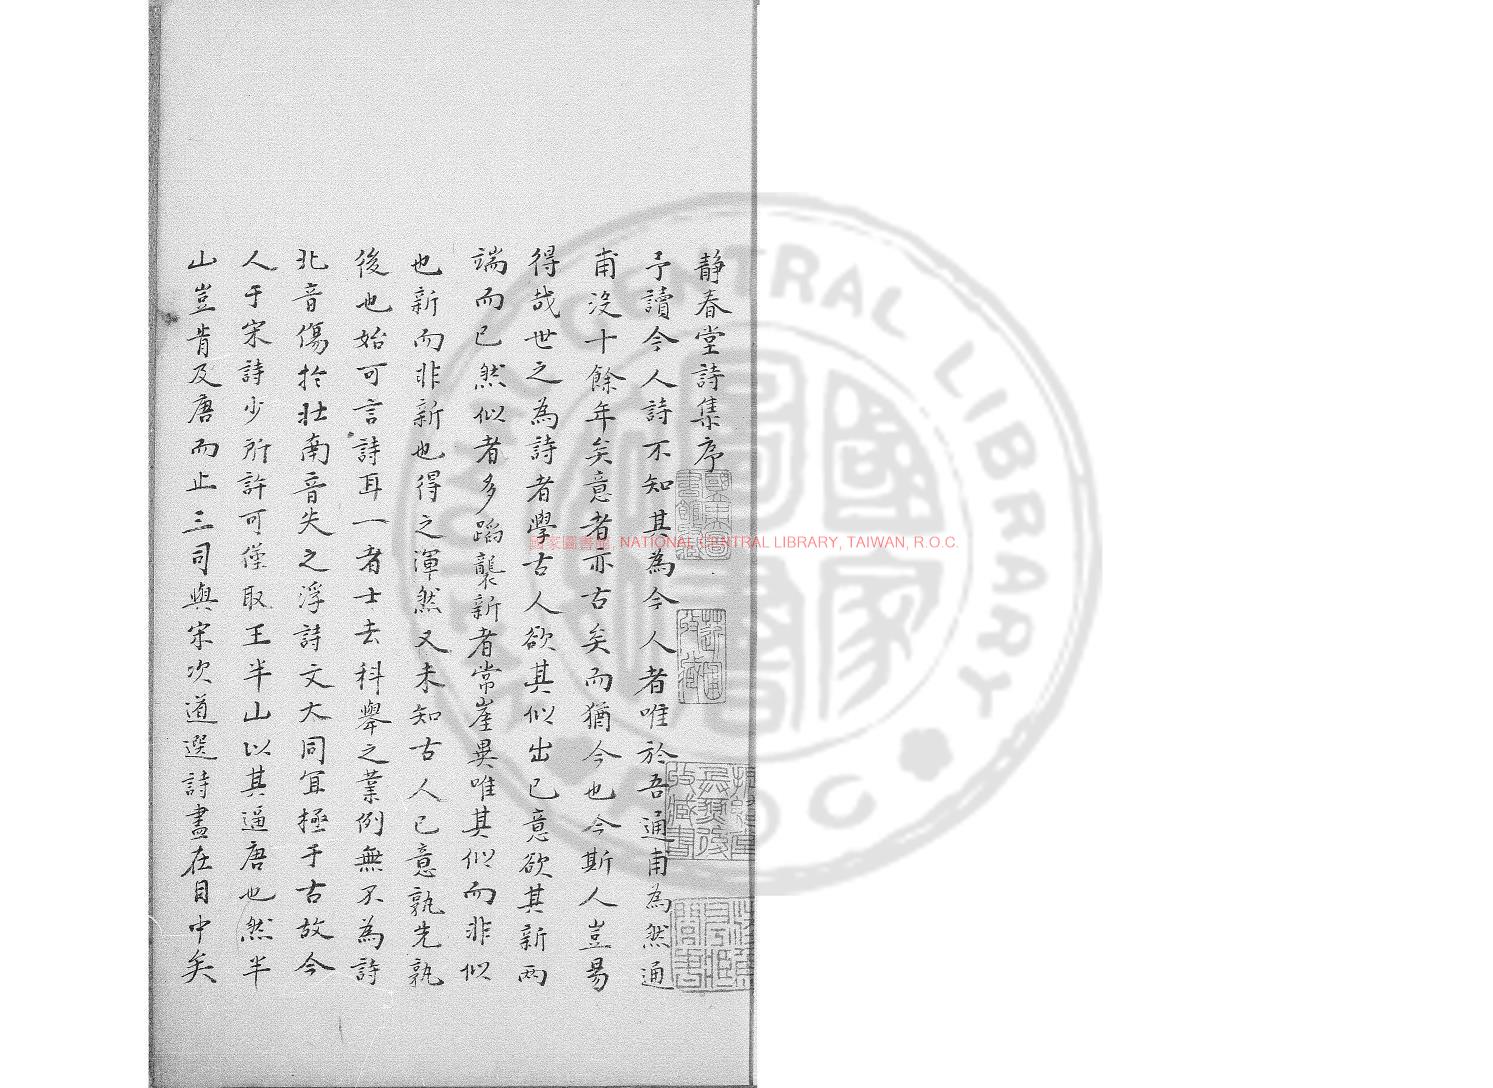 靜春堂詩集序
予讀今人詩不知其為今人者唯於吾通甫為然通
甫沒十餘年矣意者亦古矣而猶今也今斯人豈易
得哉世之為詩者學古人欲其似出己意欲其新兩
端而已然似者多蹈襲新者常崖異唯其似而非似
也新而非新也得之渾然又未知古人己意孰先孰
後也始可言詩耳一者士去科舉之業例無不為詩
北音傷於壯南音失之浮詩文大同冝極于古故今
人于宋詩少所許可僅取王半山以其逼唐也然半
山豈肯及唐而止三司與宋次道選詩盡在目中矣
國家圖書館 NATIONAL CENTRAL LIBRARY, TAIWAN, R.O.C.